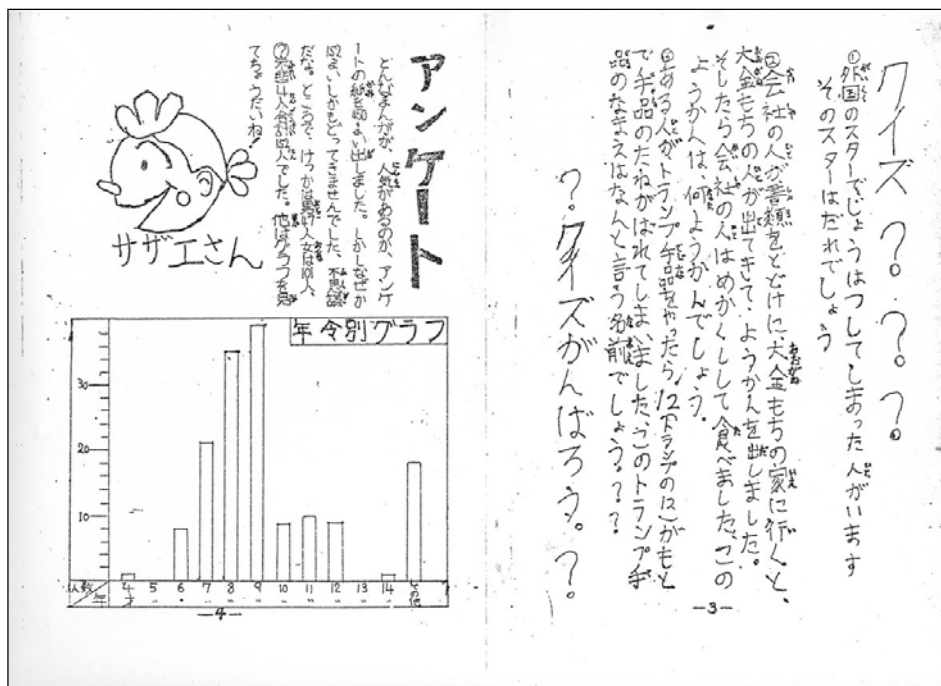 クイズ?.?.?.
①外国のスターでじょうはつしてしまった人がいます
そのスターはだれでしょう
②会社の人が書類をとどけに大金もちの家に行くと、
大金もちの人が出てきて、ようかんを出しました。
そしたら会社の人はめかくしして食べました、この
ようかんは、何ようかんでしょう。
③ある人が、トランプ手品をやったら、12(トランプの12)がもと
で手品のたねがばれてしまいました、このトランプ手
品のなまえはなんと言う名前でしょう??
?.クイズがんばろう。?
—3—
アンケート
どんなまんがが、人気があるのか、アンケ
ートの紙を450まい出しました。しかしなぜか
152まいしかもどってきませんでした、不思議
だな。ところで、けっかは男が47人女は101人、
?不明4人合計152人でした。他はグラフを見
てちょうだいね!
サザエさん
年令別グラフ
30
20
10
人数
年 4才 5 6 7 8 9 10 11 12 13 14 その他
—4—